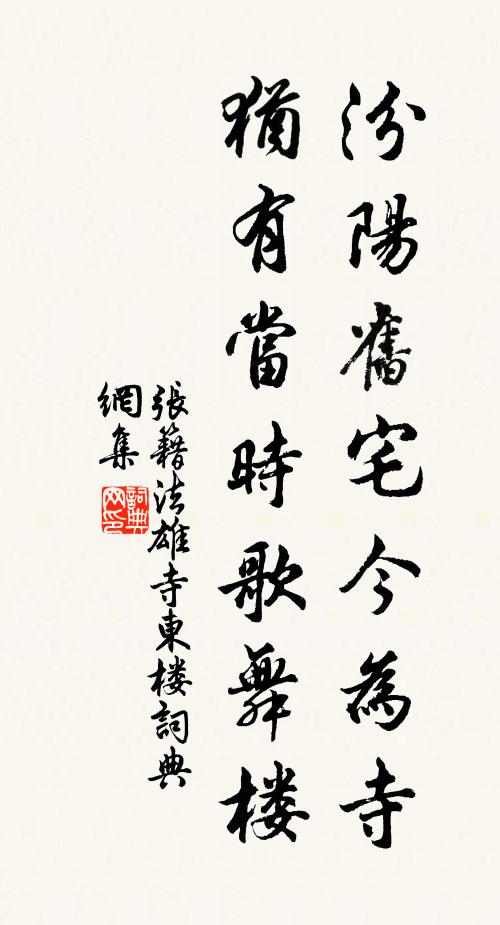 汾陽舊宅今為寺
猶有當時歌舞楼
張籍法雄寺東楼詞典
網集
詞典
网印